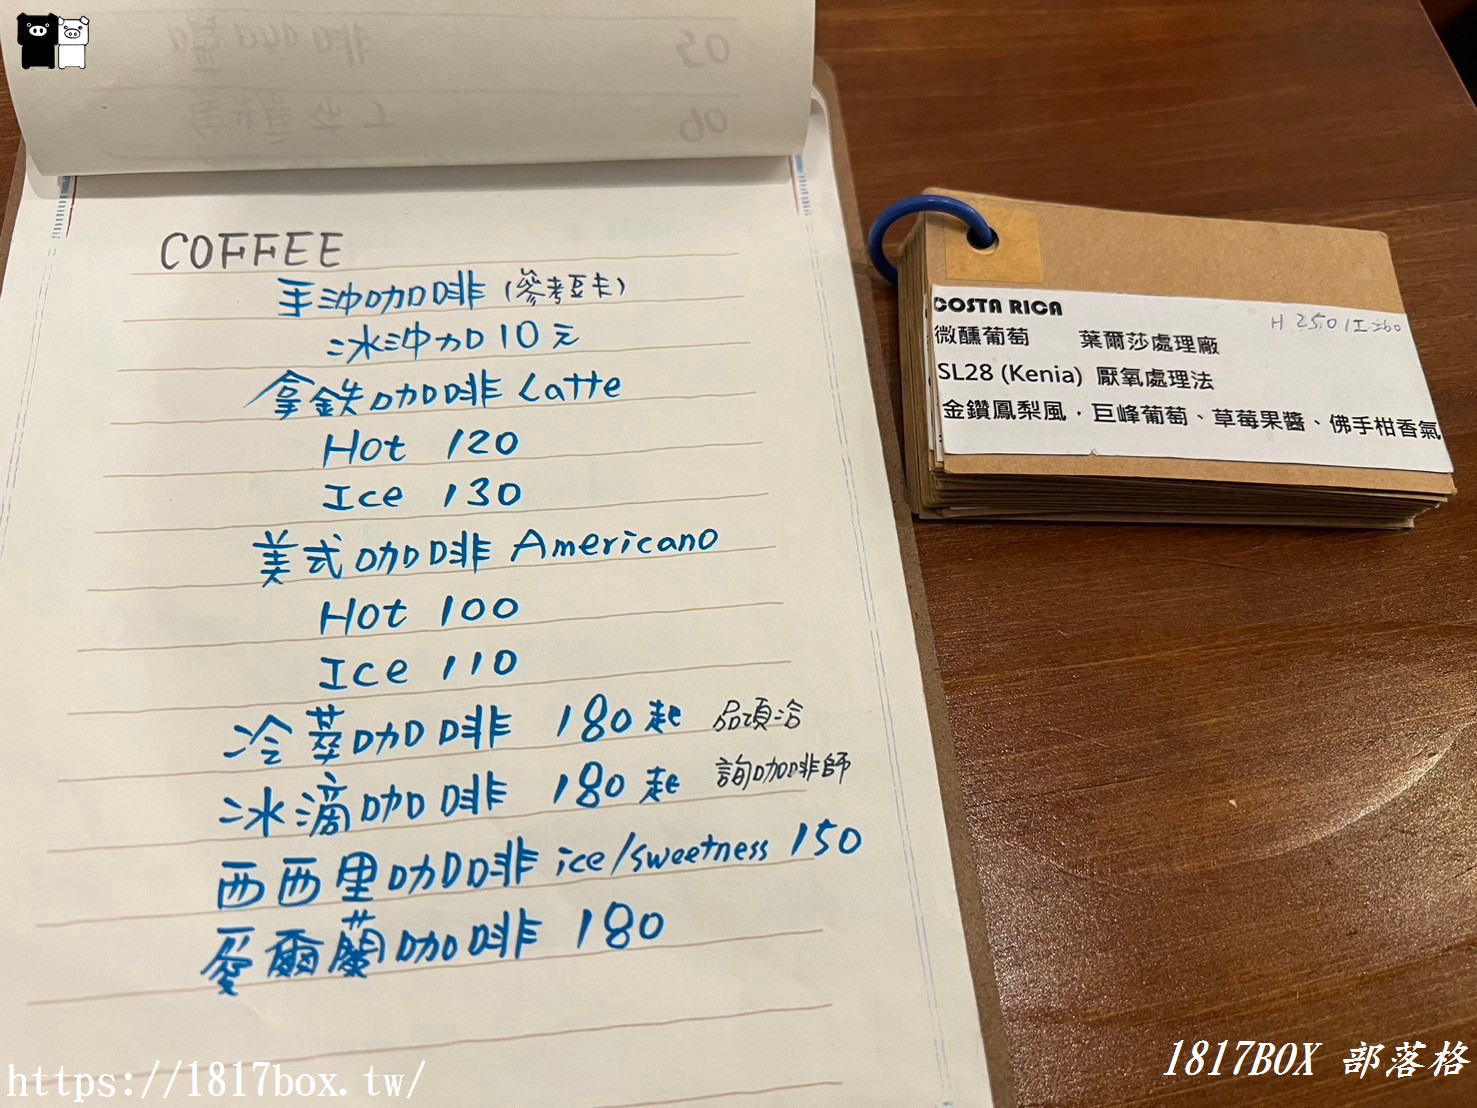 COFFEE
手沖咖啡 (參考豆卡)
冰沖加10元
拿鉄咖啡 Latte
Hot 120
Ice 130
美式咖啡 Americano
Hot 100
Ice 110
冷萃咖啡 180起 品項洽
冰滴咖啡 180起 詢咖啡師
西西里咖啡 ice/sweetness 150
愛爾蘭咖啡 180
COSTA RICA
H 250/I 260
微醺葡萄 葉爾莎處理廠
SL28 (Kenia) 厭氧處理法
金鑽鳳梨風，巨峰葡萄、草莓果醬、佛手柑香氣
https://1817box.tw/
1817BOX 部落格